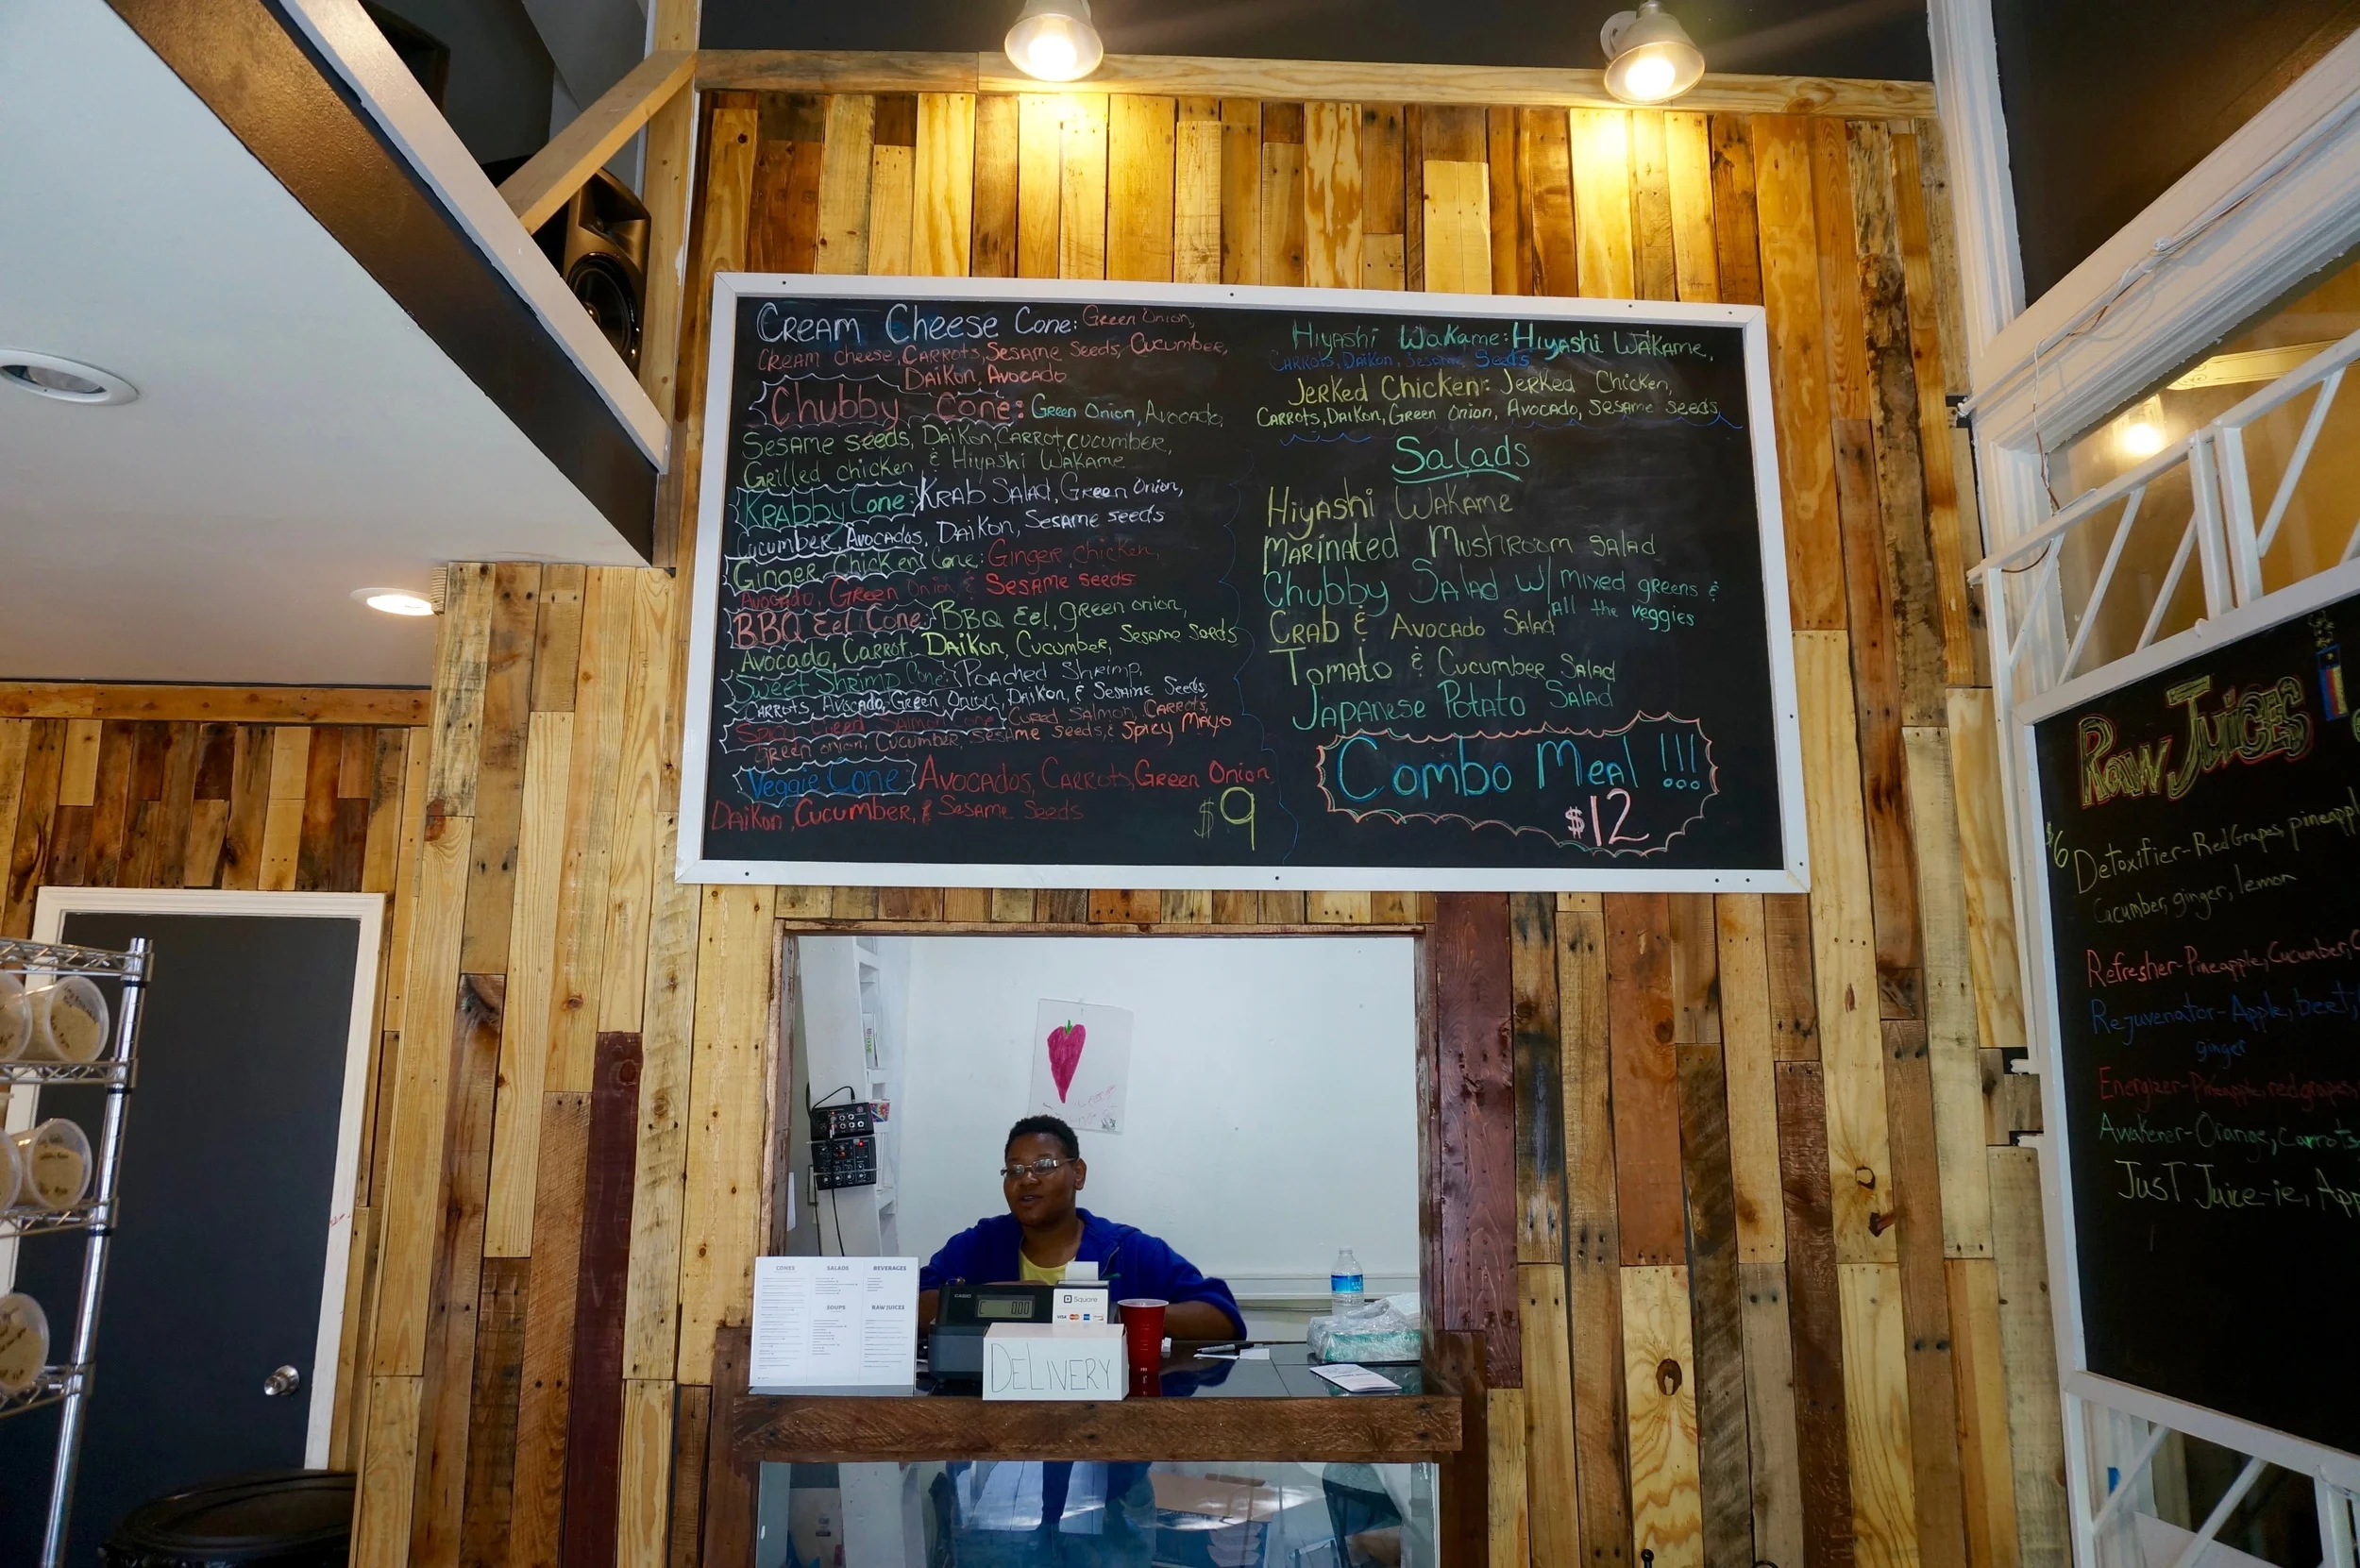 CREAM Cheese Cone: Green Onion,
Cream cheese, CARROTS, Sesame Seeds, Cucumber,
DAIKON, AVOCADO
Chubby Cone: Green Onion, Avocado,
Sesame seeds, DAIKON, CARROT, cucumber,
Grilled chicken & Hiyashi WAKAME
KRABBY Cone: KRAB SALAD, Green Onion,
Cucumber, Avocados, DAIKON, Sesame seeds
Ginger Chicken Cone: Ginger chicken,
Avocado, Green Onion & Sesame seeds
BBQ Eel Cone: BBQ Eel, green onion,
Avocado, Carrot, DAIKON, Cucumber, Sesame Seeds
Sweet Shrimp Cone: Poached Shrimp,
CARROTS, Avocado, Green Onion, DAIKON, & Sesame Seeds,
Spicy Cured Salmon Cone: Cured Salmon, CARROTS,
green onion, Cucumber, sesame seeds, & Spicy Mayo
Veggie Cone: Avocados, Carrots, Green Onion,
DAIKON, Cucumber, & Sesame Seeds
$9
Hiyashi WAKAME: Hiyashi WAKAME,
CARROTS, DAIKON, Sesame Seeds
Jerked Chicken: Jerked Chicken,
CARROTS, DAIKON, Green Onion, Avocado, Sesame seeds
Salads
Hiyashi WAKAME
MARINATED Mushroom SALAD
Chubby SALAD w/ mixed greens &
All the veggies
CRAB & AVOCADO SALAD
Tomato & Cucumber SALAD
JAPANESE POTATO SALAD
Combo Meal !!!
$12
Raw Juices
$6
Detoxifier-Red Grapes, pineappl
Cucumber, ginger, lemon
Refresher-Pineapple, Cucumber, C
Rejuvenator-Apple, beet,
ginger
Energizer-Pineapple, red grapes,
Awakener-Orange, carrots
Just Juice-ie, App
CONES SALADS BEVERAGES
SOUPS RAW JUICES
CASIO
0.00
Square
VISA
DELIVERY